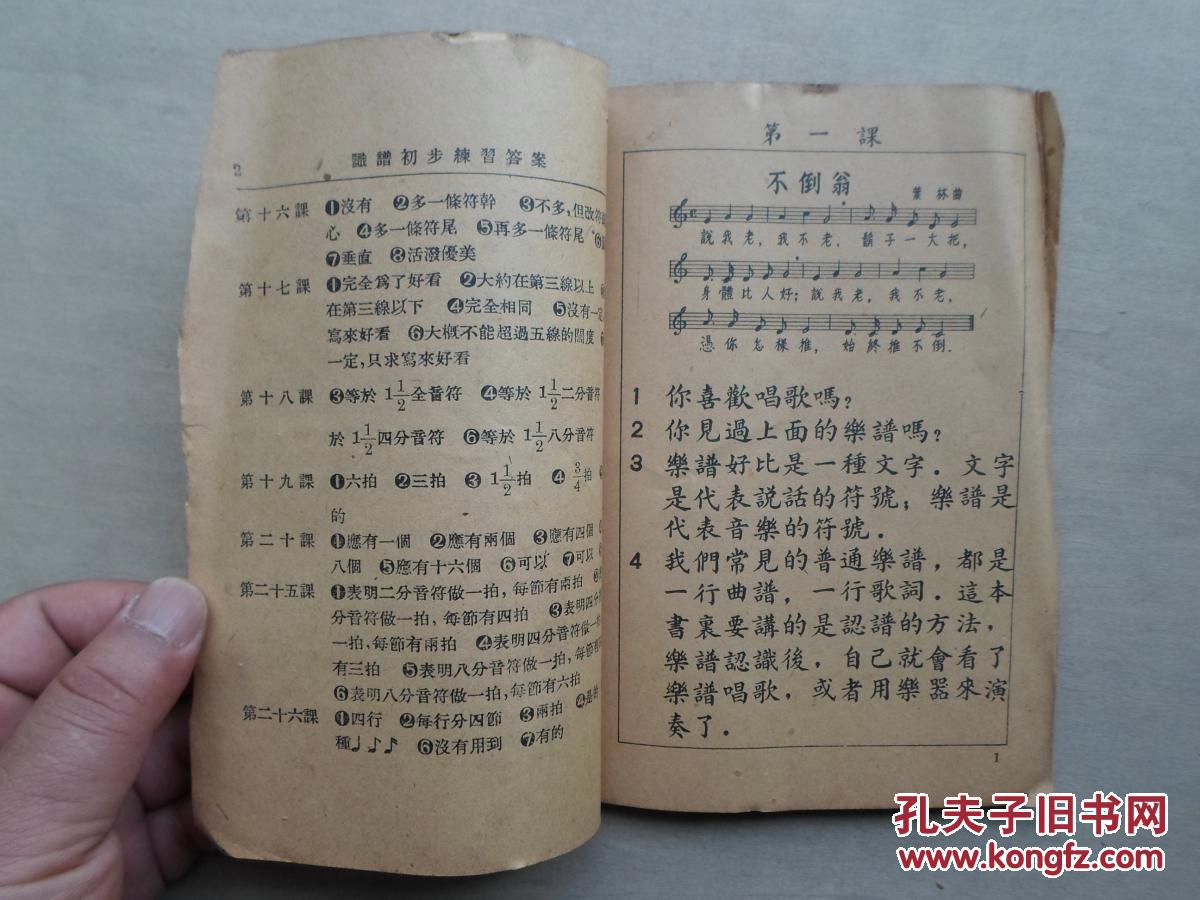 2
識譜初步練習答案
第十六課 ❶沒有 ❷多一條符幹 ❸不多,但改符
心 ❹多一條符尾 ❺再多一條符尾 ❻
❼垂直 ❽活潑優美
第十七課 ❶完全爲了好看 ❷大約在第三線以上
在第三線以下 ❹完全相同 ❺沒有一定
寫來好看 ❻大概不能超過五線的闊度
一定,只求寫來好看
第十八課 ❸等於 1 1/2 全音符 ❹等於 1 1/2 二分音符
於 1 1/2 四分音符 ❻等於 1 1/2 八分音符
第十九課 ❶六拍 ❷三拍 ❸ 1 1/2 拍 ❹ 3/4 拍
的
第二十課 ❶應有一個 ❷應有兩個 ❸應有四個
八個 ❺應有十六個 ❻可以 ❼可以
第二十五課 ❶表明二分音符做一拍,每節有兩拍
分音符做一拍,每節有四拍 ❸表明四分
一拍,每節有兩拍 ❹表明四分音符做一
有三拍 ❺表明八分音符做一拍,每節有
❻表明八分音符做一拍,每節有六拍
第二十六課 ❶四行 ❷每行分四節 ❸兩拍 ❹是
種♩♪♪ ❻沒有用到 ❼有的
第一課
不倒翁
葉林曲
說我老,我不老,鬍子一大把,
身體比人好;說我老,我不老,
憑你怎樣推,始終推不倒.
1 你喜歡唱歌嗎?
2 你見過上面的樂譜嗎?
3 樂譜好比是一種文字.文字
是代表說話的符號;樂譜是
代表音樂的符號.
4 我們常見的普通樂譜,都是
一行曲譜,一行歌詞.這本
書裏要講的是認譜的方法,
樂譜認識後,自己就會看了
樂譜唱歌,或者用樂器來演
奏了.
1
孔夫子旧书网
www.kongfz.com